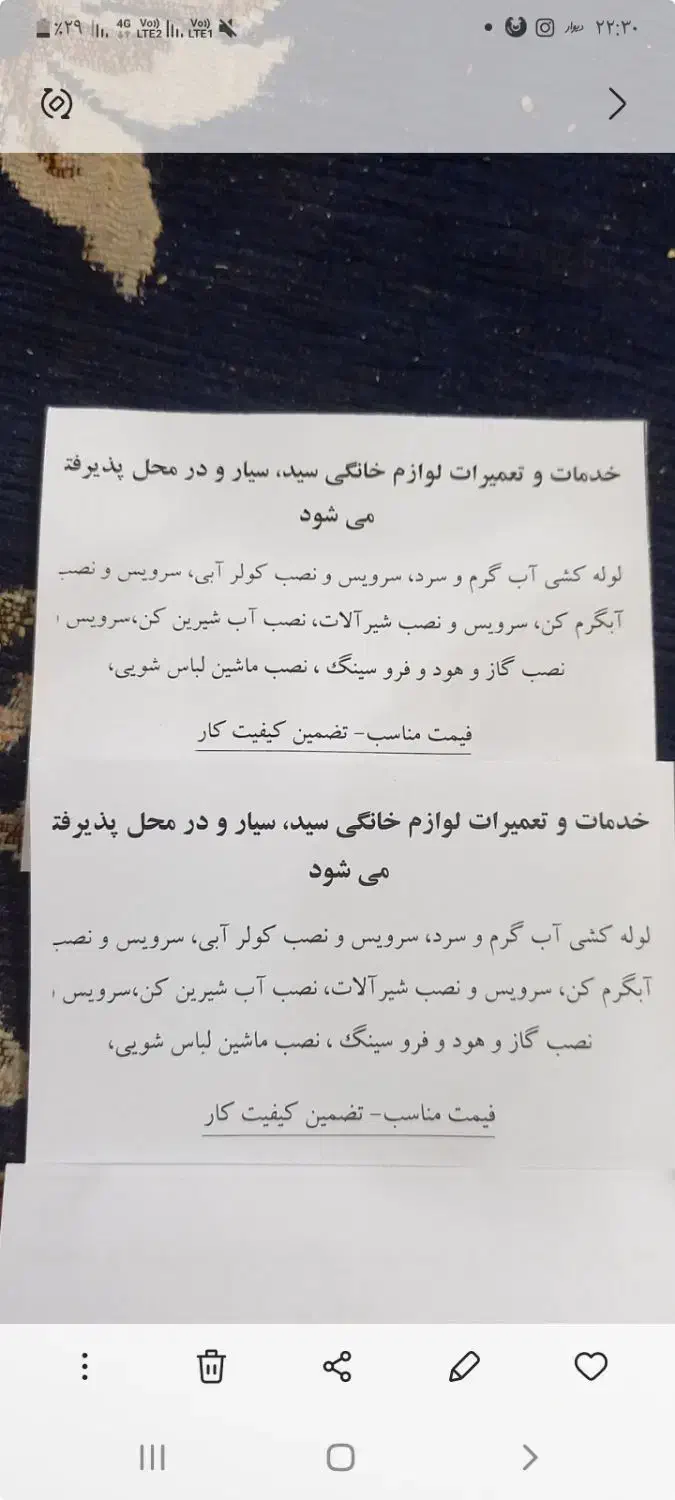 ٪۲۹ 4G Vo)) LTE2 Vo)) LTE1 دیوار ۲۲:۳۰
خدمات و تعمیرات لوازم خانگی سید، سیار و در محل پذیرفت
می شود
لوله کشی آب گرم و سرد، سرویس و نصب کولر آبی، سرویس و نصب
آبگرم کن، سرویس و نصب شیرآلات، نصب آب شیرین کن،سرویس
نصب گاز و هود و فرو سینگ ، نصب ماشین لباس شویی،
قیمت مناسب- تضمین کیفیت کار
خدمات و تعمیرات لوازم خانگی سید، سیار و در محل پذیرفت
می شود
لوله کشی آب گرم و سرد، سرویس و نصب کولر آبی، سرویس و نصب
آبگرم کن، سرویس و نصب شیرآلات، نصب آب شیرین کن،سرویس
نصب گاز و هود و فرو سینگ ، نصب ماشین لباس شویی،
قیمت مناسب- تضمین کیفیت کار